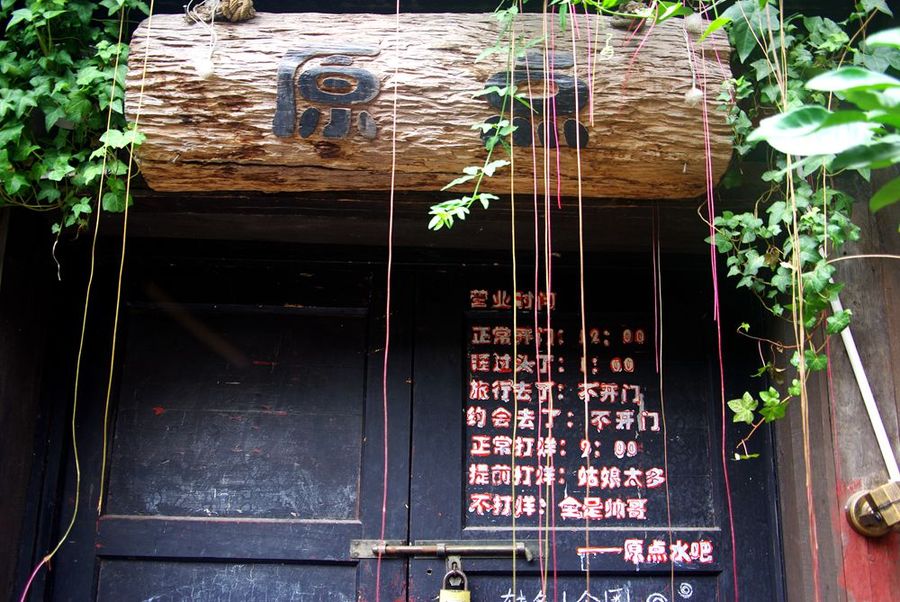 原点
营业时间
正常开门：12：00
睡过头了：1：00
旅行去了：不开门
约会去了：不开门
正常打烊：2：00
提前打烊：姑娘太多
不打烊：全是帅哥
——原点水吧